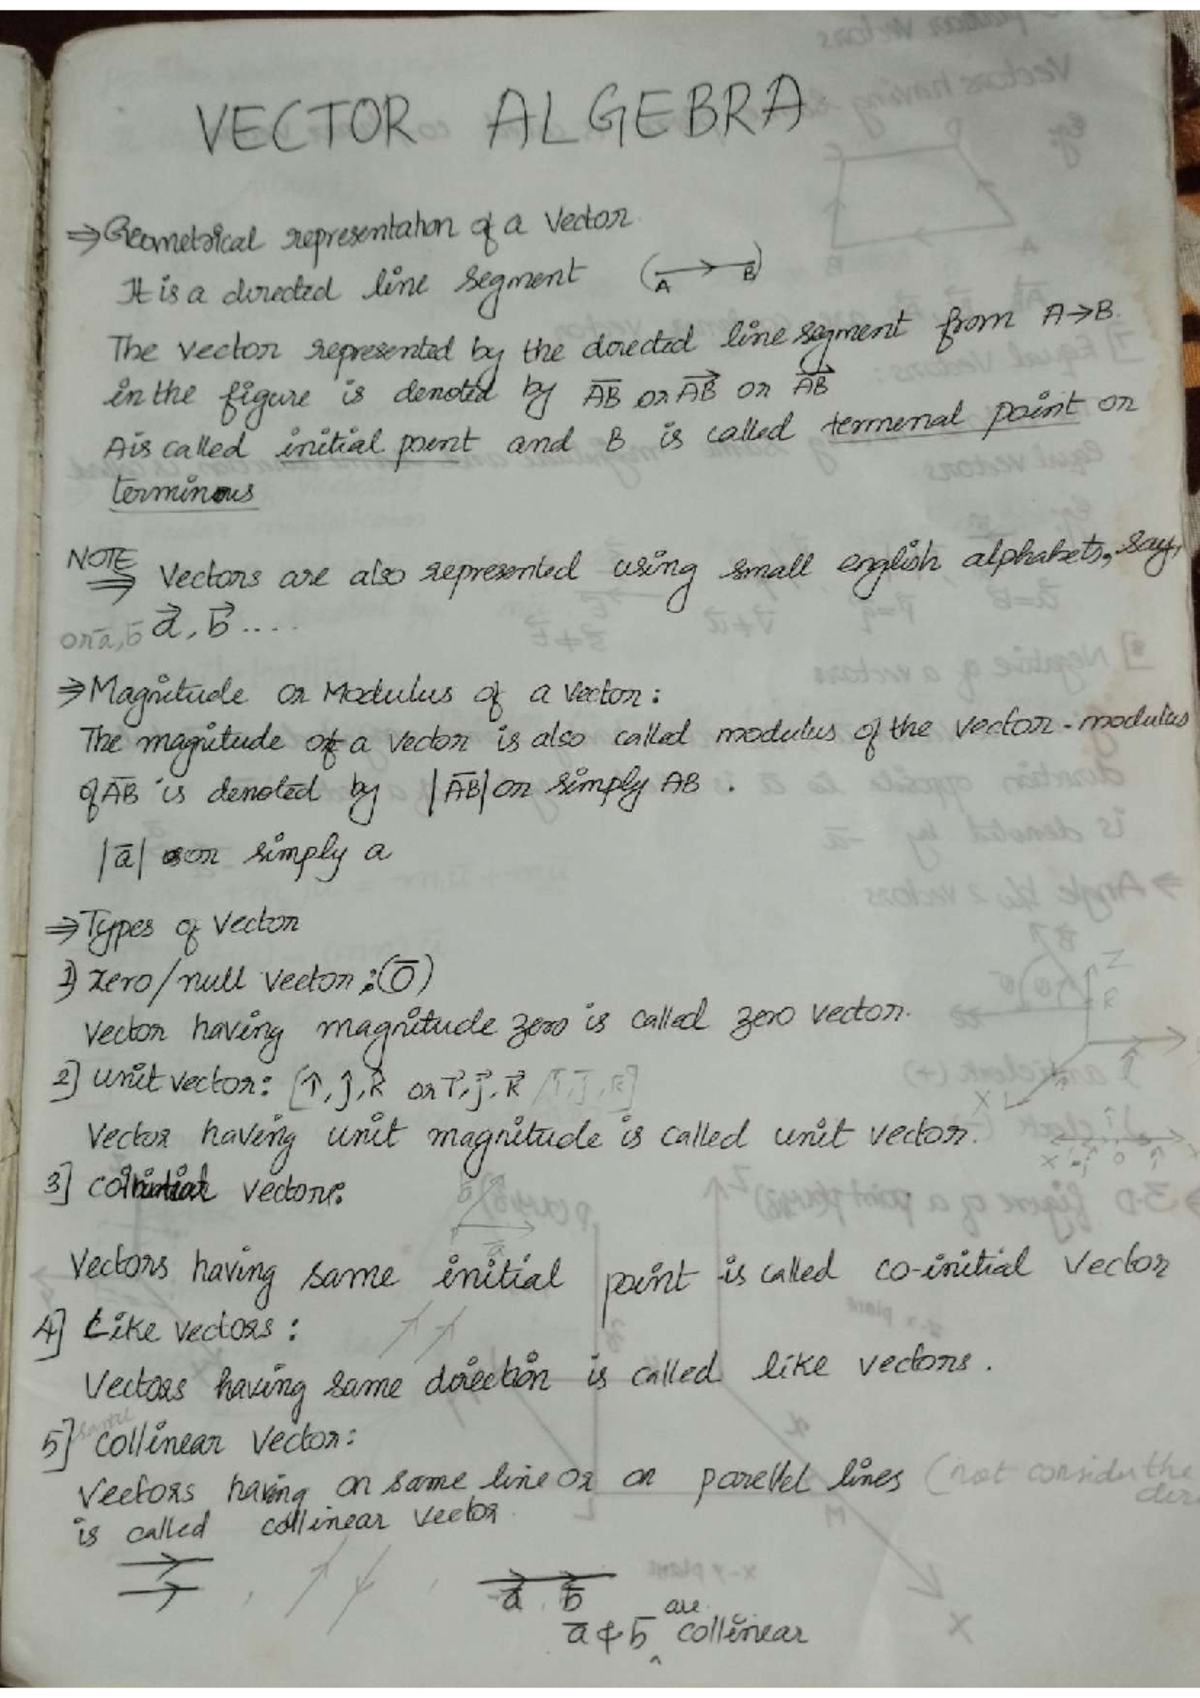 VECTOR ALGEBRA
⇒ Geometrical representation of a Vector
It is a directed line segment (A → B)
The vector represented by the directed line segment from A→B
in the figure is denoted by A̅B̅ or A͞B⃗ or A͞B⃗
A is called initial point and B is called termenal point or
terminous
NOTE
⇒ Vectors are also represented using small english alphabets, say,
or a̅, b̅ a⃗, b⃗ ....
⇒ Magnitude or Modulus of a Vector:
The magnitude of a Vector is also called modulus of the vector - modulus
of A̅B̅ is denoted by |A̅B̅| or simply AB.
|a̅| or simply a
⇒ Types of Vector
1) Zero/null vector: (O̅)
Vector having magnitude zero is called zero vector.
2] Unit vector: [î, ĵ, k̂ or i⃗, j⃗, k⃗ / i̅, j̅, k̅]
Vector having unit magnitude is called unit vector.
3] Coinitial vectors:
b̅
a̅
Vectors having same initial point is called co-initial Vector
4] Like vectors:
Vectors having same direction is called like vectors.
5] Collinear Vector:
Vectors having on same line or on parellel lines (not consider the
is called collinear vector
a̅ b̅
a̅ & b̅ are collinear